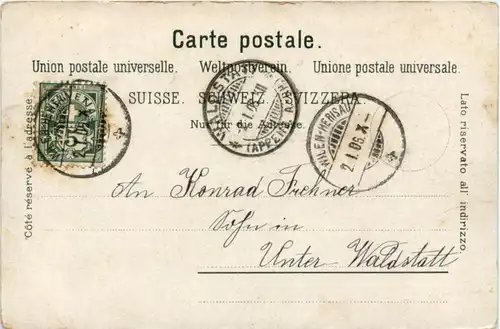 Carte postale.
Union postale universelle. Weltpostverein. Unione postale universale.
SUISSE. SCHWEIZ. SVIZZERA.
Nur für die Adresse.
Côté réservé à l'adresse.
Lato riservato all'indirizzo.
WALDSTATT
(APPENZ.)
WILEN-HERISAU
2.I.05.X-
An Konrad Frehner
Sohn in
Unter Waldstatt